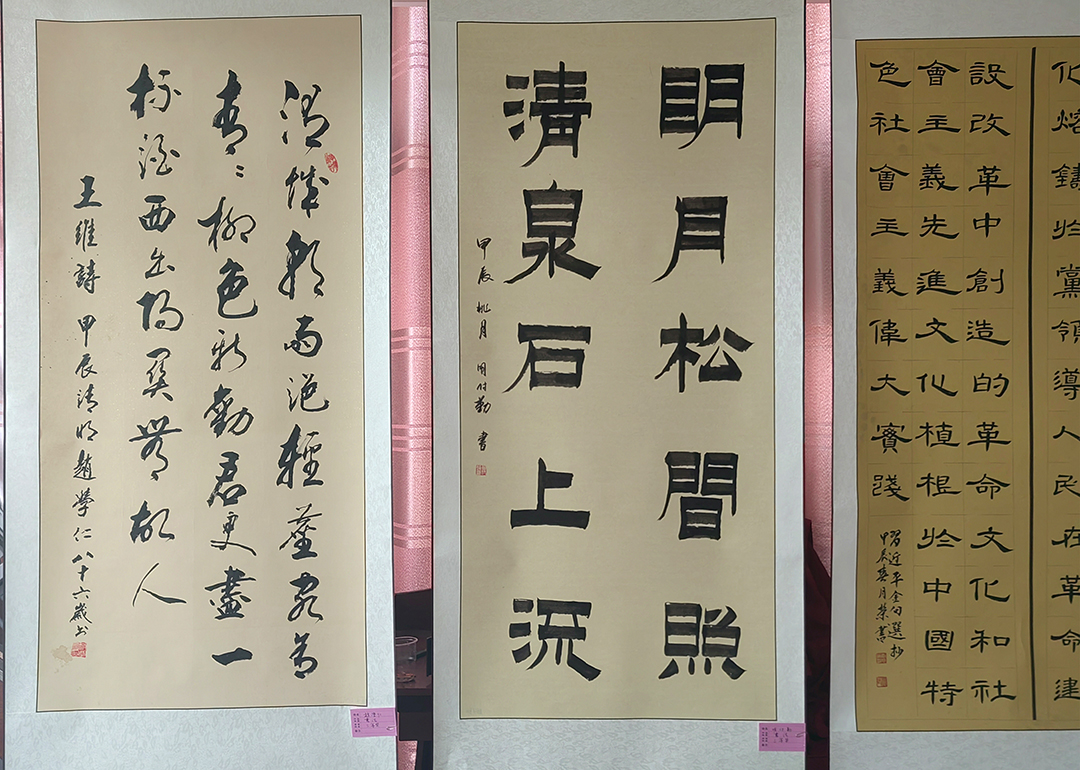 化熔鑄於黨領導人民在革命建
設改革中創造的革命文化和社
會主義先進文化植根於中國特
色社會主義偉大實踐
習近平金句選抄
甲辰春月榮書
眀月松間照
清泉石上流
甲辰桃月 勤書
渭城朝雨浥輕塵客舍
青〻柳色新勸君更盡一
杯酒西出陽關無故人
王維詩 甲辰清明趙學仁八十六歲書